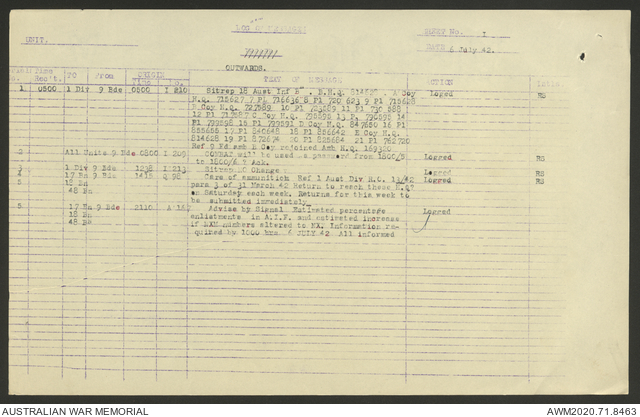 LOG OF MESSAGES
SHEET No. I
UNIT.
DATE 6 July 42.
OUTWARDS.
TEXT OF MESSAGE ACTION
TO From ORIGIN
1 0500 1 Div 9 Bde 0500 I 210 Sitrep 18 Aust Inf B.H.Q. A Coy Logged RS
H.Q. 715627 7 Pl 716636 8 Pl 720 623 9 Pl 715628
B Coy H.Q. 727589 10 Pl 723589 11 Pl 730 588
12 Pl 717587 C Coy H.Q. 13 Pl 14
Pl 799598 15 Pl 799591 D Coy H.Q. 847650 16 Pl
855655 17 Pl 840648 18 Pl 856642 E Coy H.Q.
814628 19 Pl 872674 20 Pl 825684 21 Pl 762720
Ref 9 Fd amb B Coy rejoined Amb H.Q. 169320
2 All Units 9 Bde 0800 I 209 will be used as password from 1800/5 Logged RS
to 1800/6 Ack.
3 1 Div 9 Bde 1238 I 213 Sitrep No Change. Logged RS
4 17 Bn 9 Bde 1415 Q 98 Care of ammunition Ref 1 Aust Div R.O. 13/42 Logged RS
5 18 Bn para 3 of 31 March 42 Return to reach these H.Q?
48 Bn or Saturday each week. Returns for this week to
be submitted immediately
5 17 Bn 9 Bde 2110 A 147 Advise by Signal Estimated percentage Logged
18 Bn enlistments in A.I.F. and estimated increase
48 Bn if NXM numbers altered to NX. Information re-
quired by 1800 hrs 6 JULY 42 All informed
AUSTRALIAN WAR MEMORIAL
AWM2020.71.8463